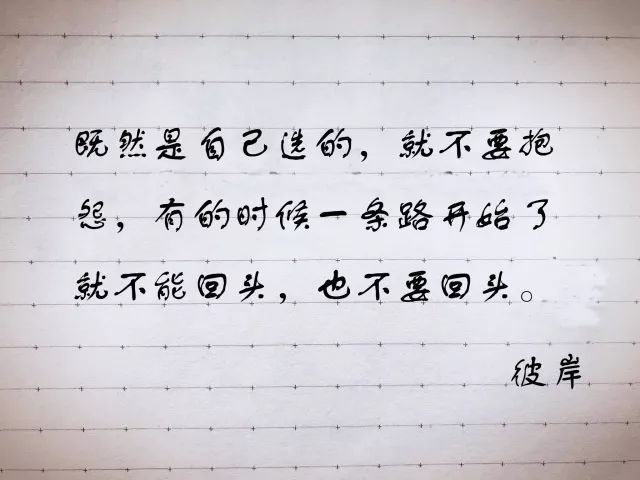 既然是自己选的，就不要抱
怨，有的时候一条路开始了
就不能回头，也不要回头。
彼岸